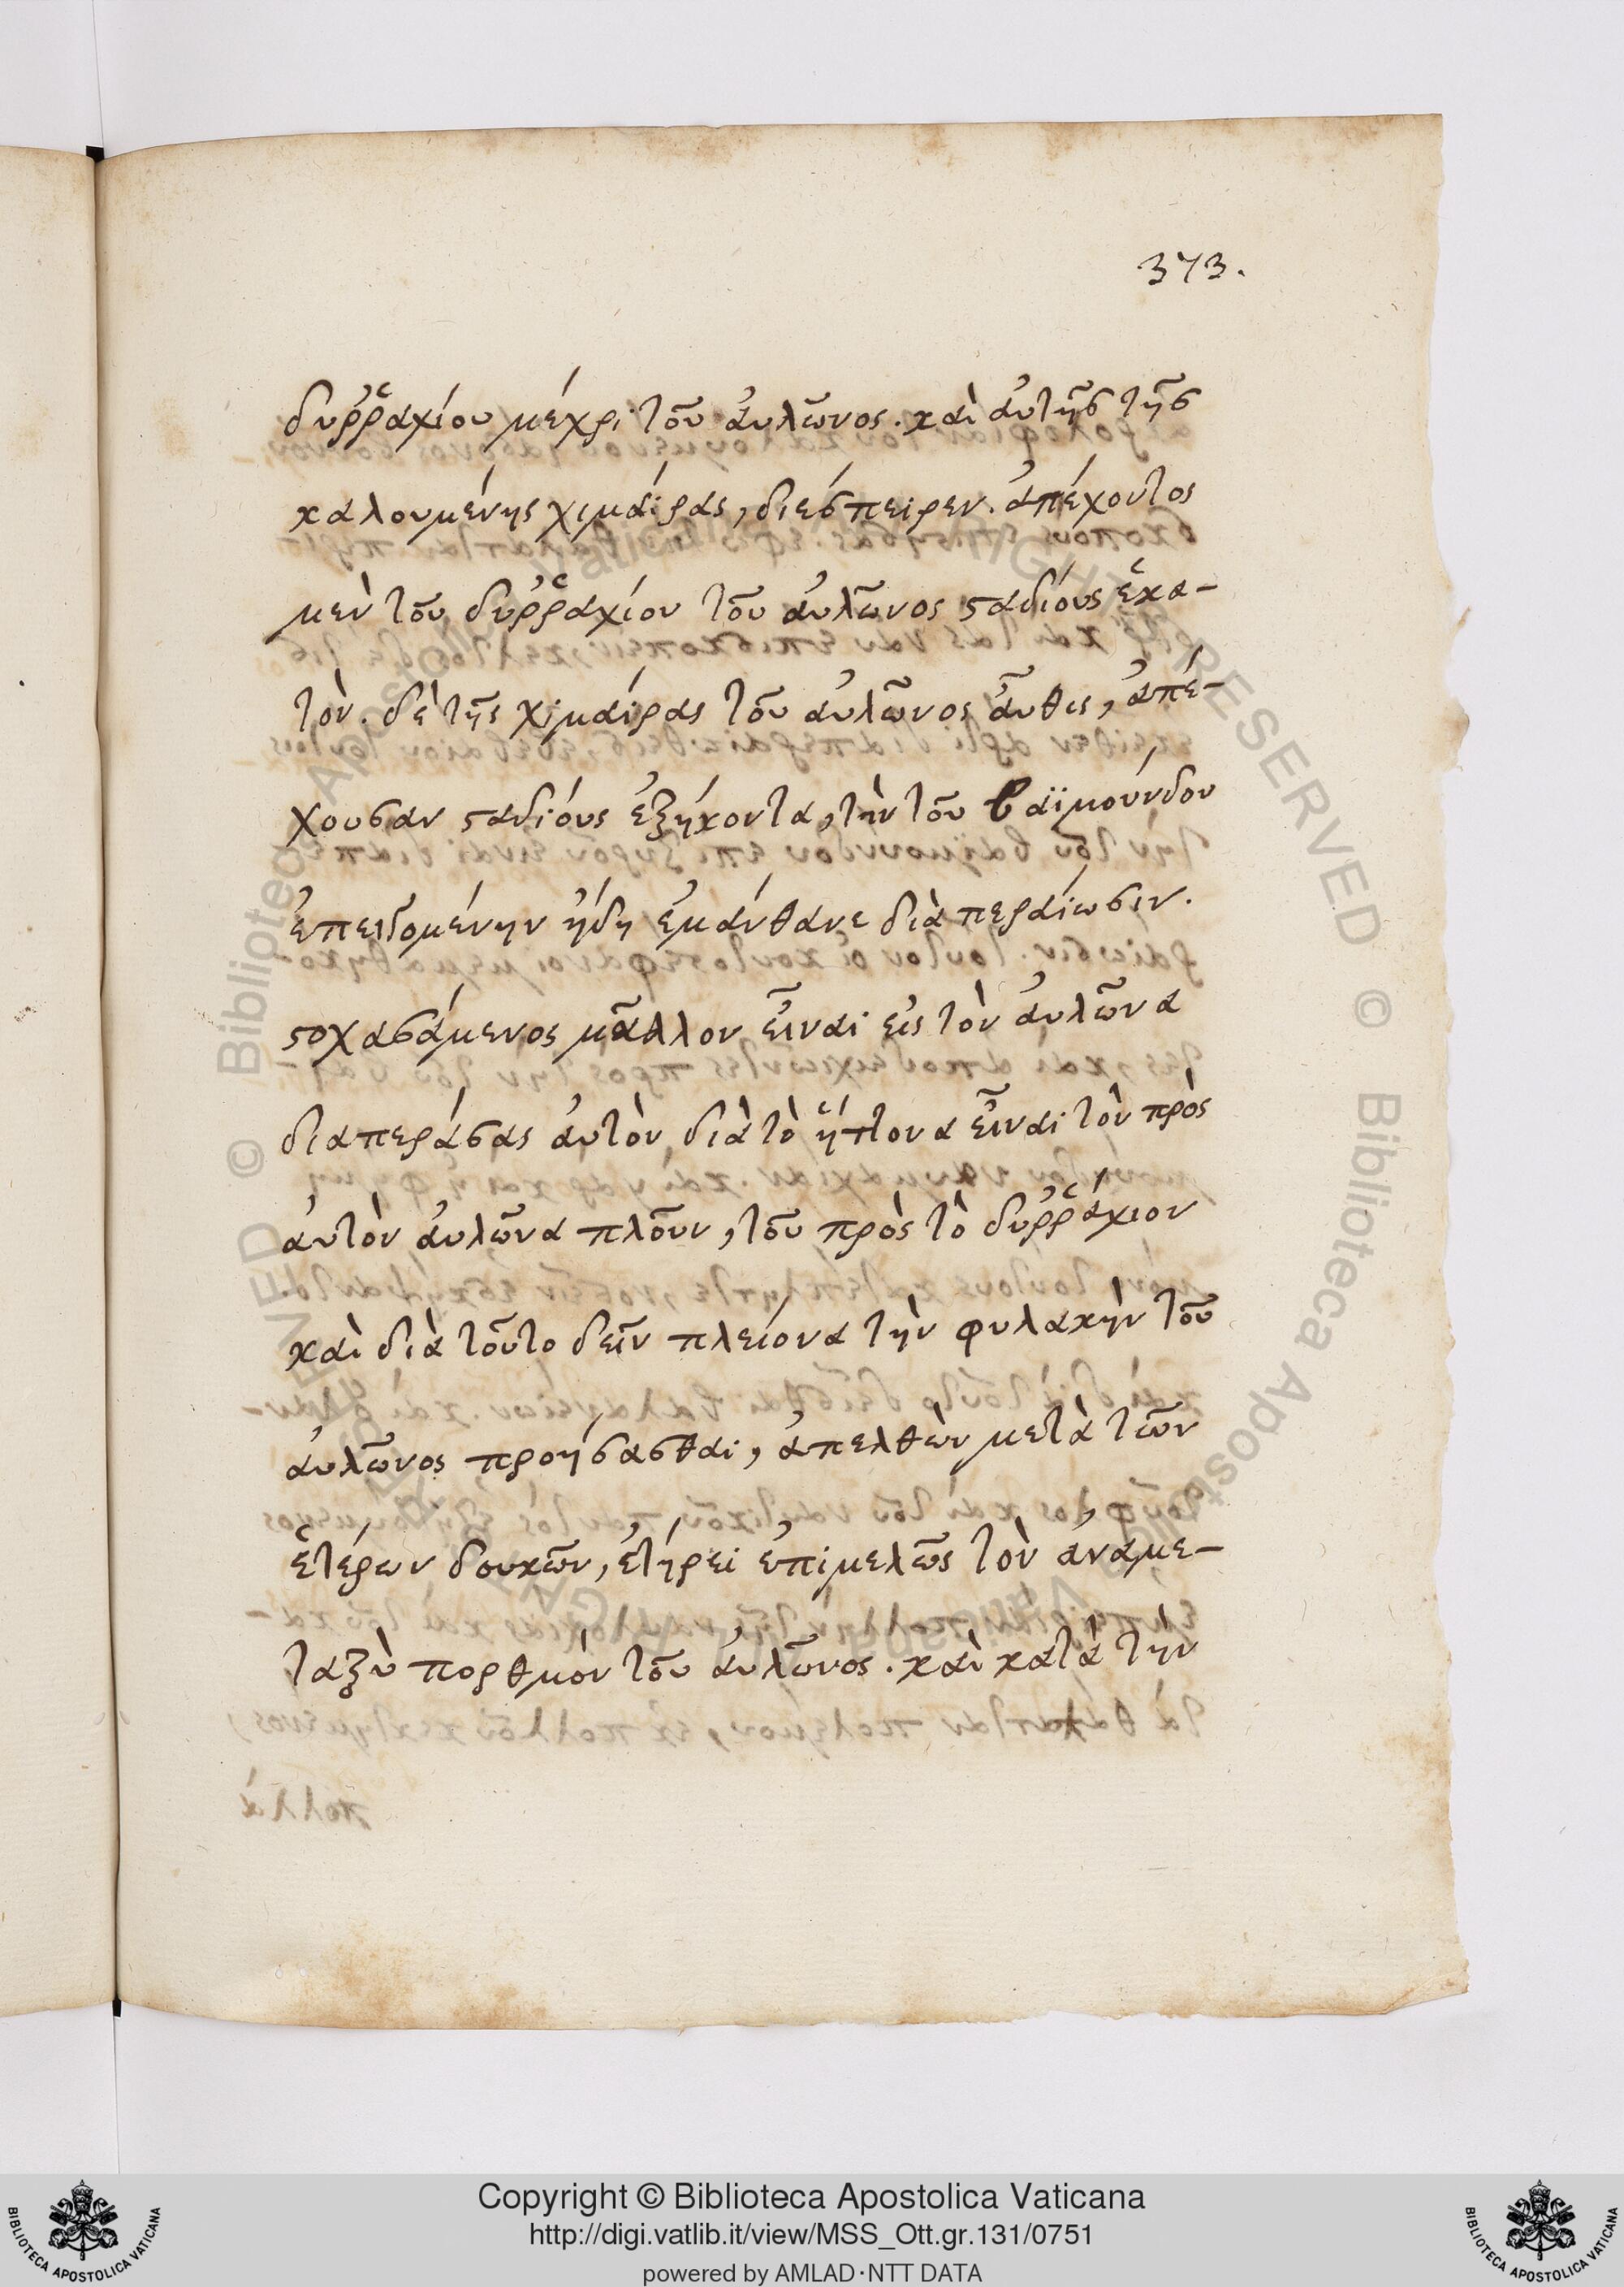 373.
δυῤῥαχίου μέχρι τοῦ ἀυλῶνος. καὶ ἀυτῆς τῆς
καλουμένης χιμαίρας, διέσπειρεν. ἀπέχοντος
μὲν τοῦ δυῤῥαχίου τοῦ ἀυλῶνος ϛαδίους ἑκα-
τὸν. δὲ τῆς χιμαίρας τοῦ ἀυλῶνος ἆυθις, ἀπέ-
χουσαν ϛαδίους ἑξήκοντα, τὴν τοῦ βαϊμούνδου
ἐπειγομένην ἤδη ἐμάνθανε διὰ περαίωσιν.
ϛοχασάμενος μᾶλλον εἶναι εἰς τὸν ἀυλῶνα
διαπεράσας ἀυτὸν διὰ τὸ ἥττονα εἶναι τὸν πρὸς
αυτὸν ἀυλῶνα πλοῦν, τοῦ πρὸς τὸ δυῤῥάχιον
καὶ διὰ τοῦτο δεῖν πλείονα τὴν φυλακὴν τοῦ
ἀυλῶνος προήσασθαι, ἀπελθὼν μετὰ τῶν
ἑτέρων δουκῶν, ἐτήρει ἐπιμελῶς τὸν ἀναμε-
ταξὺ πορθμὸν τοῦ ἀυλῶνος. καὶ κατὰ τὴν
Copyright © Biblioteca Apostolica Vaticana
http://digi.vatlib.it/view/MSS_Ott.gr.131/0751
powered by AMLAD·NTT DATA
BIBLIOTECA APOSTOLICA VATICANA
BIBLIOTECA APOSTOLICA VATICANA